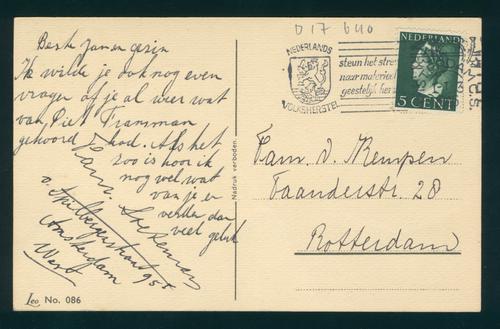 D17 640
NEDERLANDS
VOLKSHERSTEL
steun het stre
naar materieel
geestelijk her
NEDERLAND
5 CENT
Beste Jan en gezin
Ik wilde je ook nog even
vragen of je al weer wat
van Piet Tramman
gehoord had. Als het
zoo is hoor ik
nog wel wat
van je er
verder dan
veel geluk
Fam.
v. Spilbergenstraat 95
Amsterdam
West
Nadruk verboden.
Fam. v. Kempen
Taanderstr. 28
Rotterdam
Leo No. 086